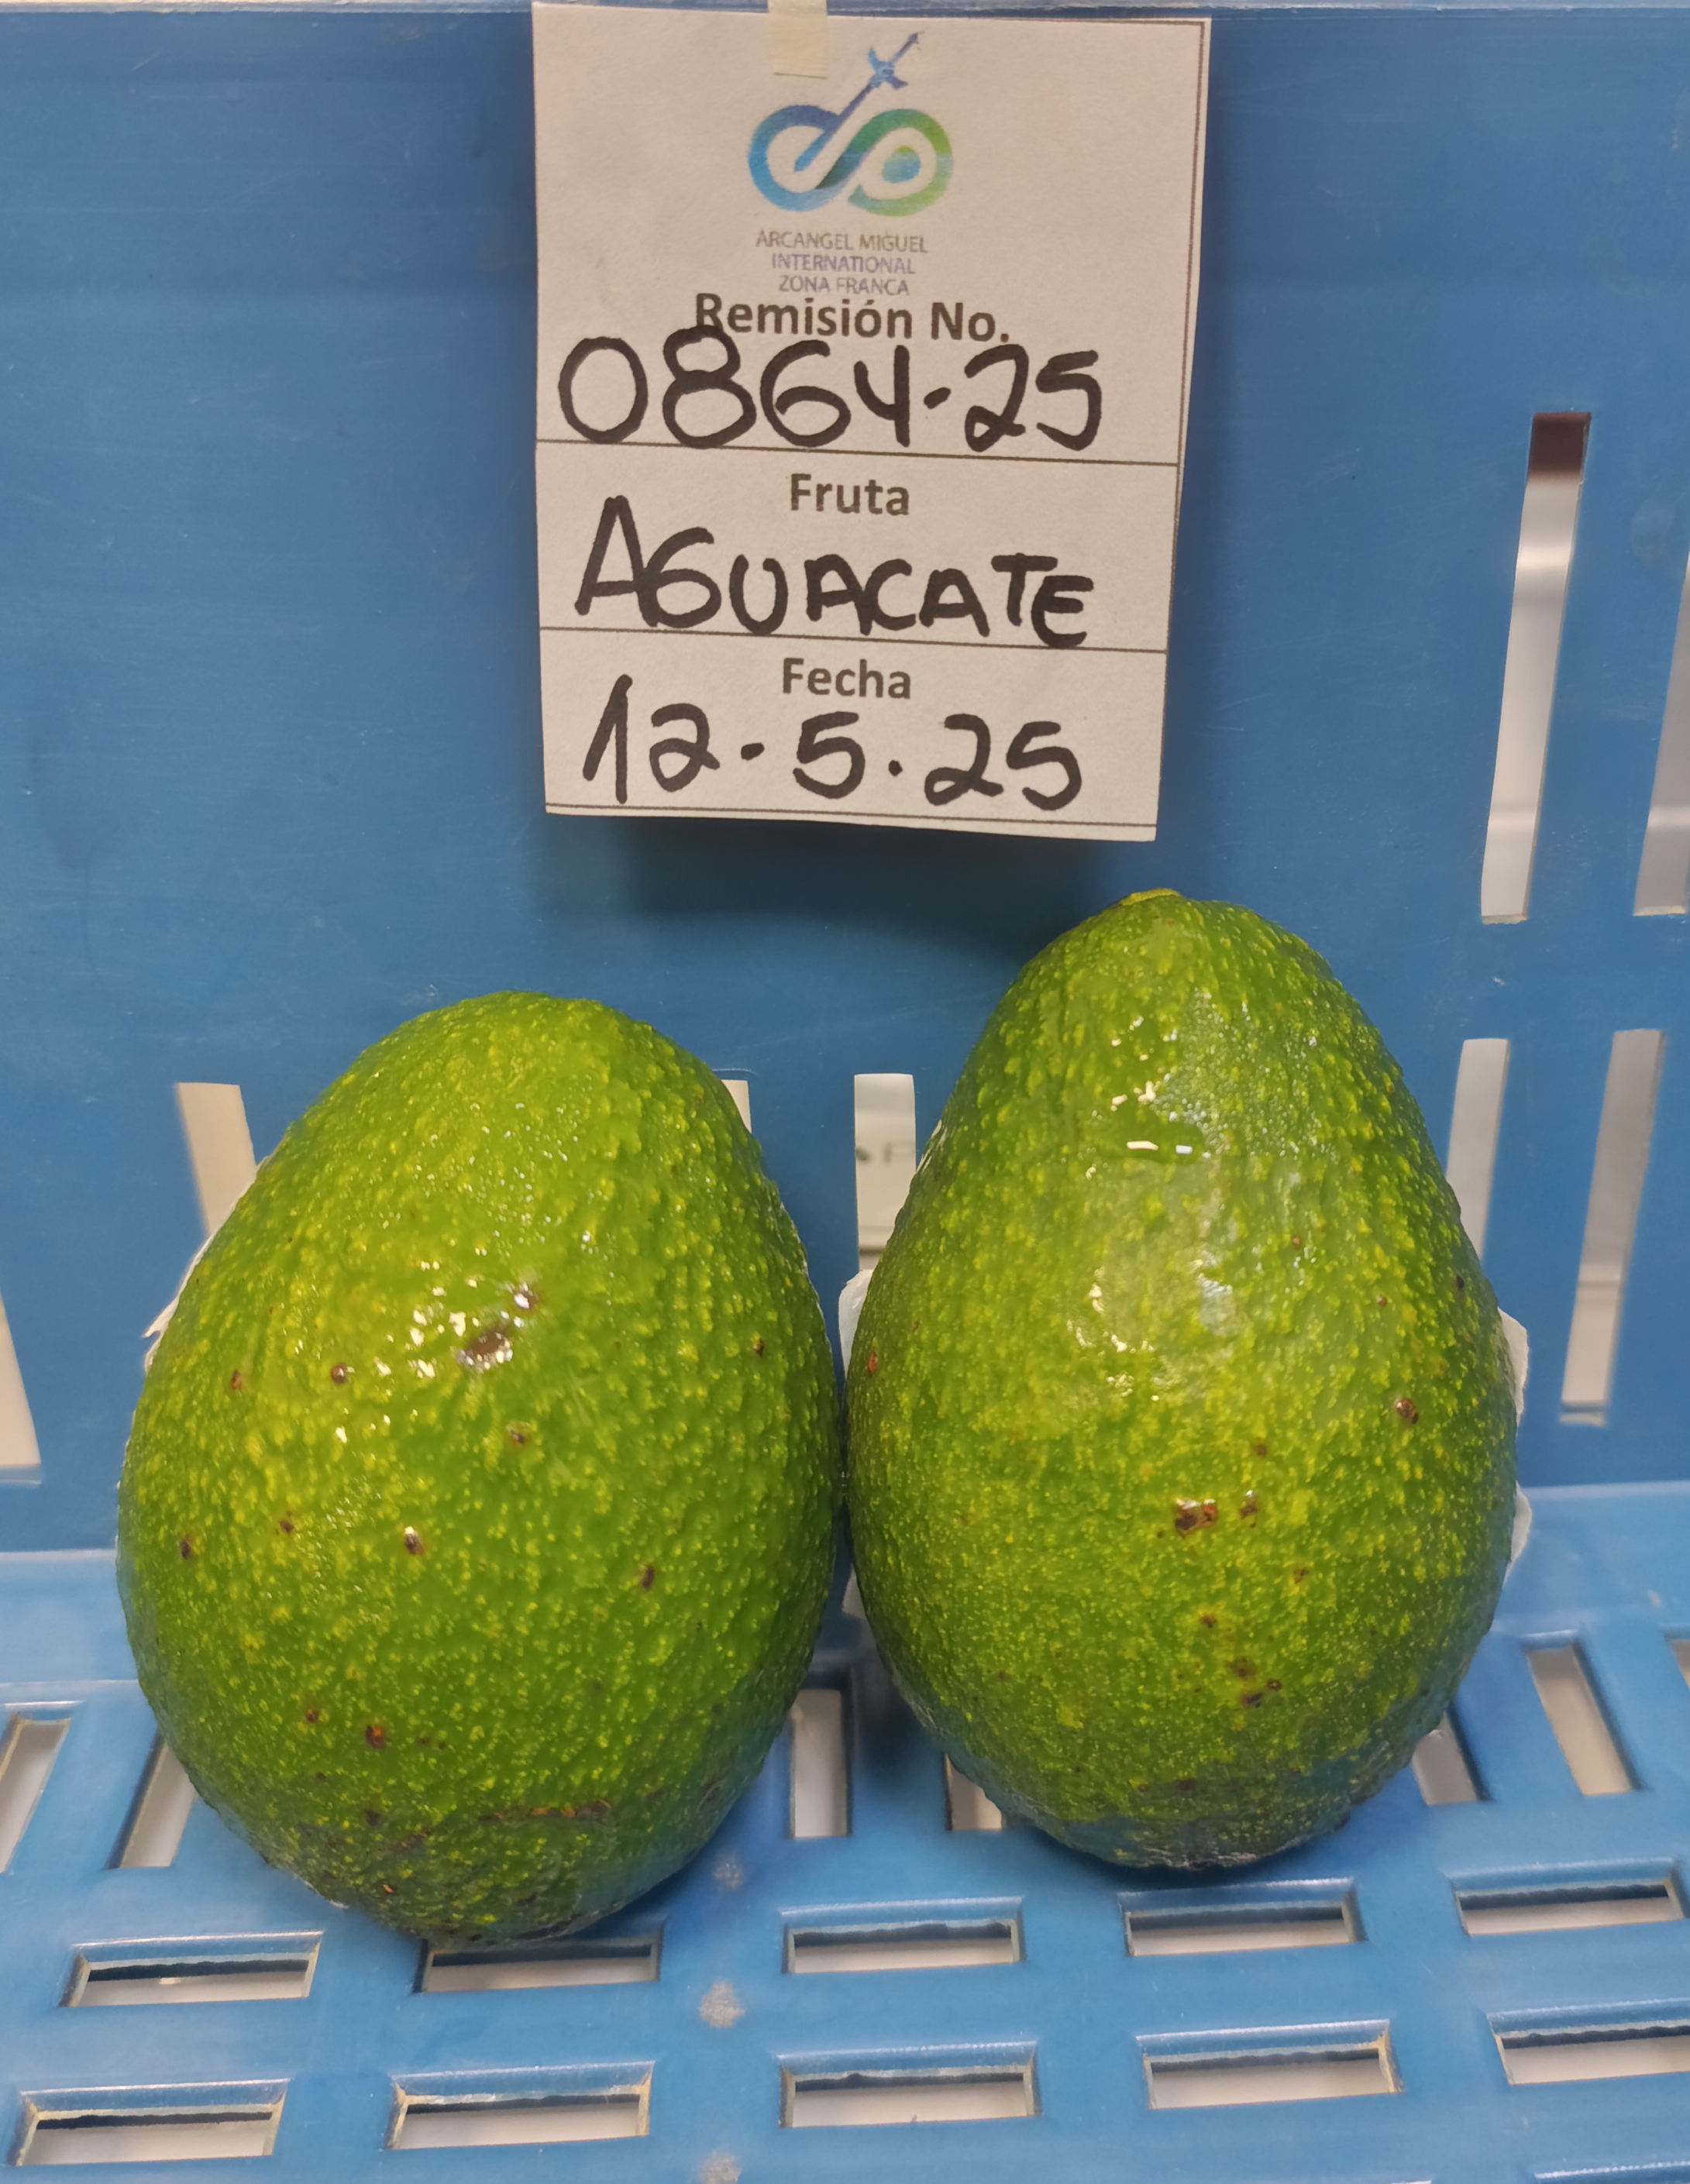 ARCANGEL MIGUEL
INTERNATIONAL
ZONA FRANCA
Remisión No.
0864-25
Fruta
AGUACATE
Fecha
12.5.25